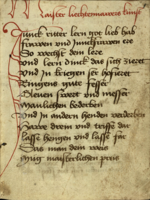 Maister liechtenawers kunst
Junck ritter lern got lieb hab
frawen und junckfrawen ere
So wechst dein ere
Und lern dinck das dich zieret
Und in kriegen ser hofieret
Ringens gute fesser
Glenen swert und messer
Manlichen bederben
Und in andern henden verderben
Hawe drein und
hengen und lasse
Das man dein
maisterlichen preis